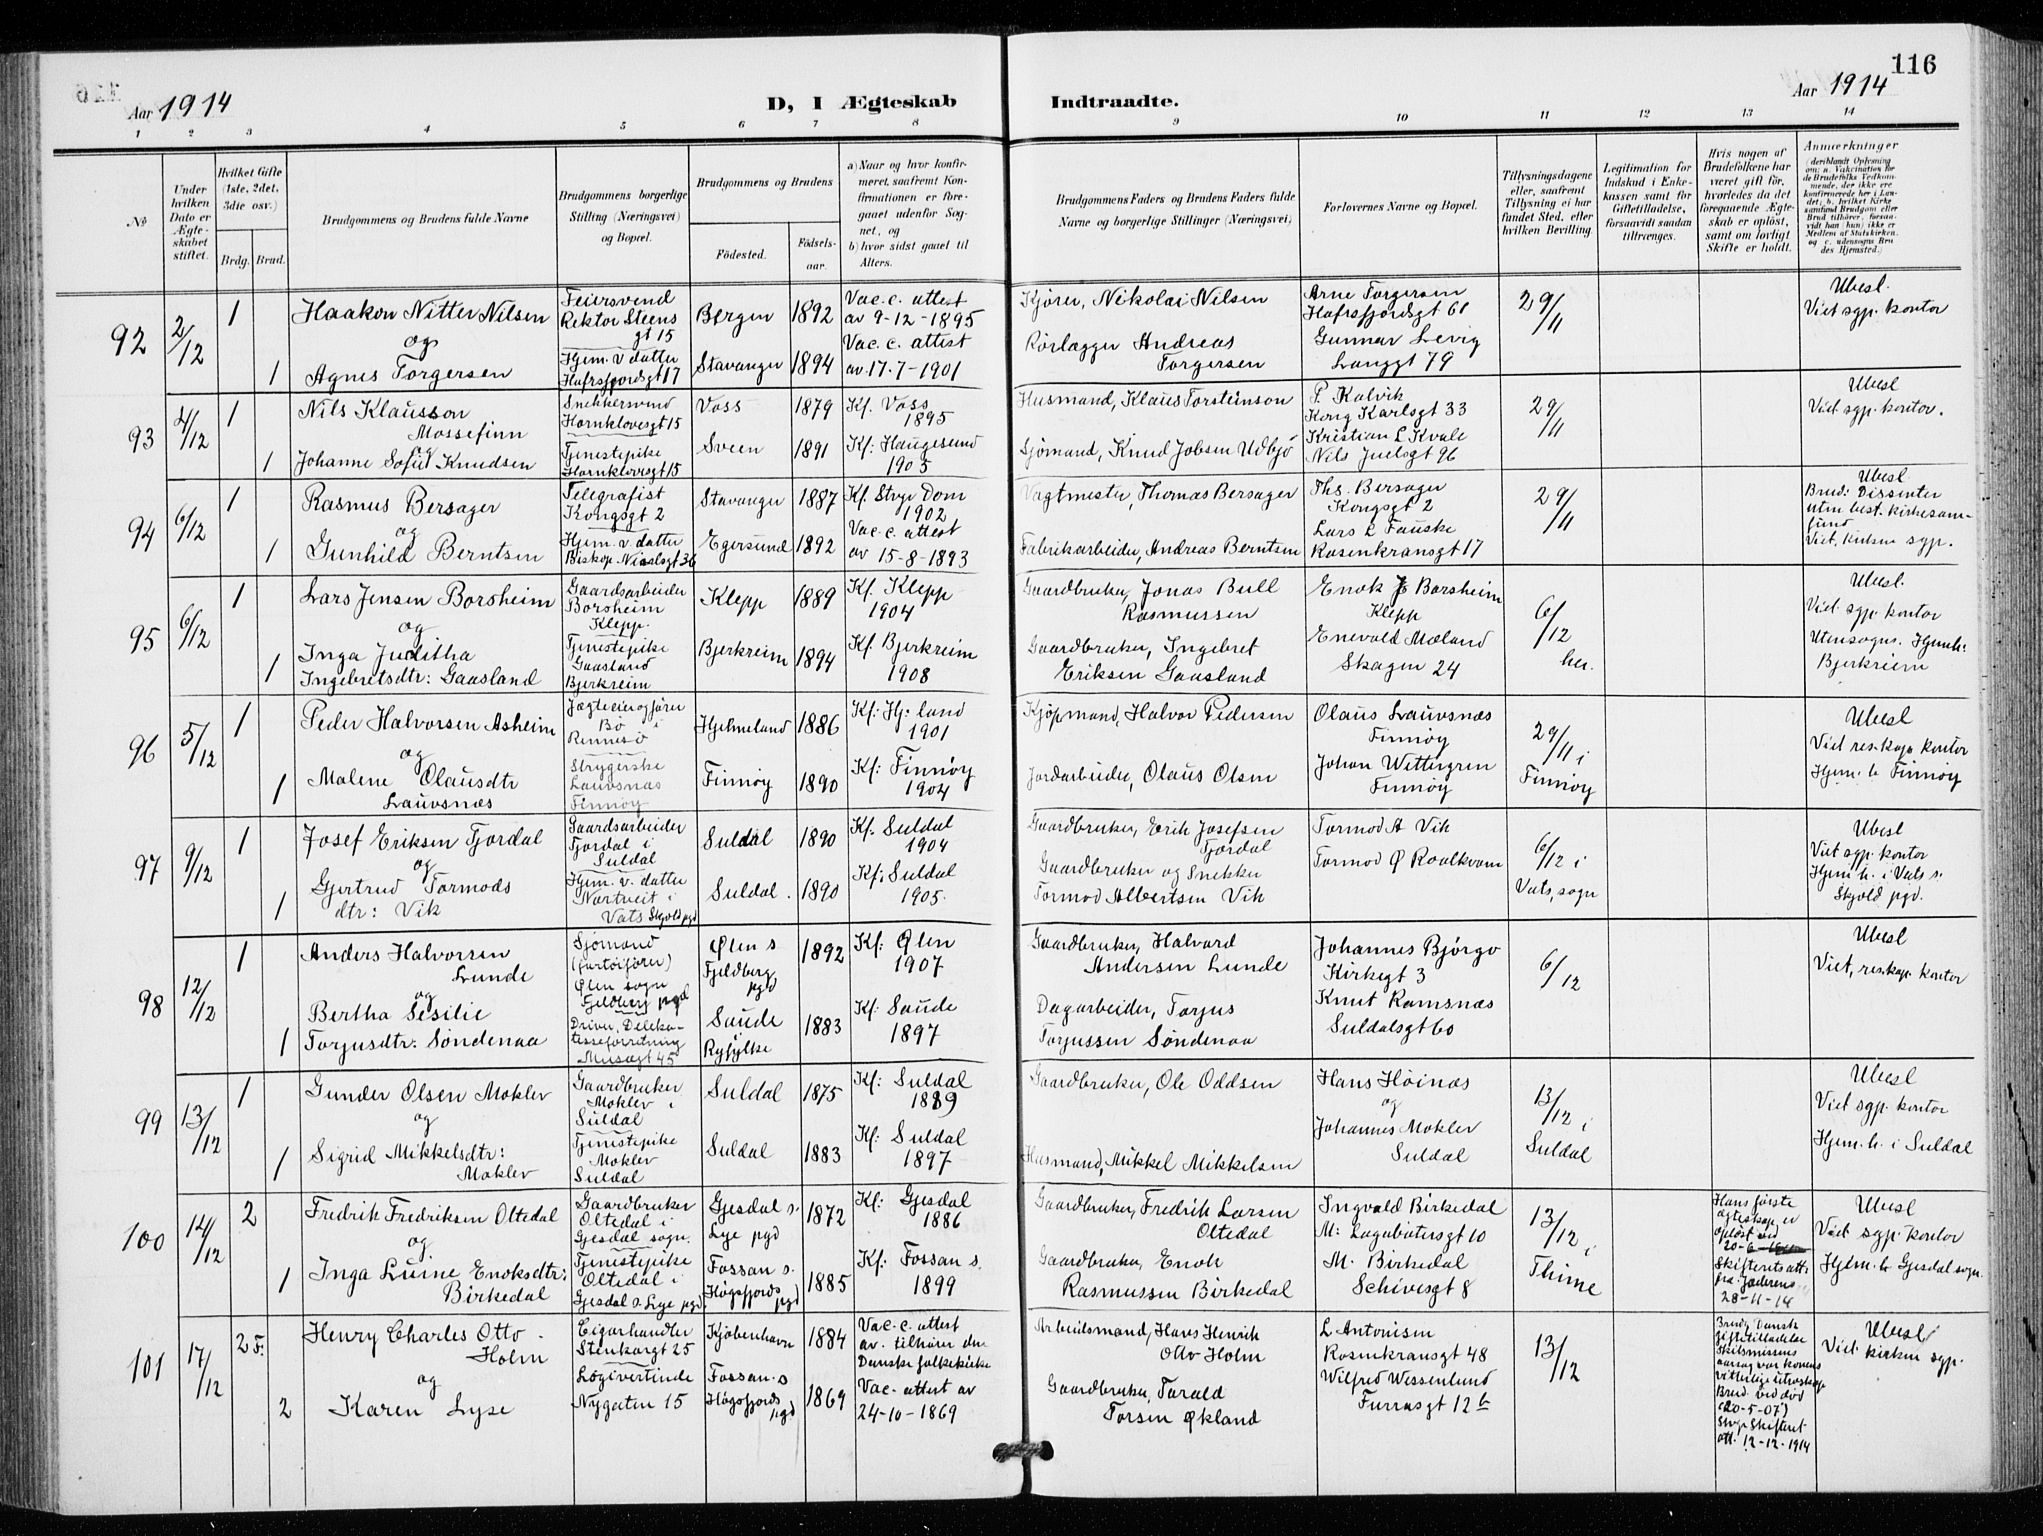 116
Aar 1914
D, I Ægteskab
Indtraadte.
Aar 1914
1 2 3 4 5 6 7 8 9 10 11 12 13 14
№
Under hvilken Dato er Ægteskabet stiftet.
Hvilket Gifte (1ste, 2det, 3die osv.)
Brdg. Brud.
Brudgommens og Brudens fulde Navne
Brudgommens borgerlige Stilling (Næringsvei) og Bopæl.
Brudgommens og Brudens
Födested.
Födselsaar.
a) Naar og hvor konfirmeret, saafremt Konfirmationen er foregaaet udenfor Sognet, og
b) hvor sidst gaaet til Alters.
Brudgommens Faders og Brudens Faders fulde Navne og borgerlige Stillinger (Næringsvei)
Forlovernes Navne og Bopæl.
Tillysningsdagene eller, saafremt Tillysning ei har fundet Sted, efter hvilken Bevilling.
Legitimation for Indskud i Enkekassen samt for Giftetilladelse, forsaavidt saadan tiltrænges.
Hvis nogen af Brudefolkene har været gift för, hvorledes da det foregaaende Ægteskab er oplöst, samt om lovligt Skifte er holdt.
Anmærkninger
(deriblandt Oplysning om: a. Vakcination for de Brudefolks Vedkommende, der ikke ere konfirmerede her i Landet; b. hvilket Kirkesamfund Brudgom eller Brud tilhörer, forsaavidt han (hun) ikke er Medlem af Statskirken, og c. udensogns Brudes Hjemsted.)
92
2/12
1
Haakon Nitter Nilsen
og
1
Agnes Torgersen
Feiersvend
Rektor Steens
gt 15
Hjem. v datter
Hafrsfjordsgt 17
Bergen 1892
Stavanger 1894
Vac. c. attest
av 9-12-1895
Vac. c. attest
av 17-7-1901
Kjører, Nikolai Nilsen
Rørlægger Andreas
Torgersen
Arne Torgersen
Hafrsfjordsgt 61
Gunnar Levig
Langgt 79
29/11
Ubesl.
Viet sgp. kontor
93
4/12
1
Nils Klausson
Mossefinn
og
1
Johanne Sofie Knudsen
Snekkersvend
Hornklovesgt 15
Tjenestepike
Hornklovesgt 15
Voss 1879
Sveen 1891
Kf. Voss
1895
Kf: Haugesund
1905
Husmand, Klaus Torsteinson
Sjømand, Knud Jobsen Udbjø
P. Kalvik
Kong Karlsgt 33
Kristian L Kvale
Nils Juelsgt 96
29/11
Ubesl
Viet sgp. kontor.
94
6/12
1
Rasmus Bersager
og
1
Gunhild Berntsen
Telegrafist
Kongsgt 2
Hjem. v datter
Biskop Nialsgt 36
Stavanger 1887
Egersund 1892
Kf. Stvgr Dom
1902
Vac. c. attest
av 15-8-1893
Vagtmester, Thomas Bersager
Fabrikarbeider, Andreas Berntsen
Ths. Bersager
Kongsgt 2
Lars L Fauske
Rosenkransgt 17
29/11
Ubesl
Brud: Dissenter
uten best. kirkesam-
fund
Viet. kirken sgp.
95
6/12
1
Lars Jensen Borsheim
og
1
Inga Juditha
Ingebretsdtr: Gaasland
Gaardsarbeider
Borsheim
Klepp.
Tjenestepike
Gaasland
Bjerkreim
Klepp 1889
Bjerkreim 1894
Kf. Klepp
1904
Kf Bjerkreim
1908
Gaardbruker, Jonas Bull
Rasmussen
Gaardbruker, Ingebret
Eriksen Gaasland
Enok J Borsheim
Klepp
Enevald Mæland
Skagen 24
6/12
her.
Ubesl.
Viet sgp. kontor
Utensogns. Hjemh:
Bjerkreim
96
5/12
1
Peder Halvorsen Asheim
og
1
Malene Olausdtr
Lauvsnæs
Jægteeier og fører
Bø i
Rennesø
Strygerske
Lauvsnæs
Finnøy
Hjelmeland 1886
Finnøy 1890
Kf: Hj: land
1901
Kf: Finnøy
1904
Kjøpmand, Halvor Pedersen
Jordarbeider, Olaus Olsen
Olaus Lauvsnæs
Finnøy
Johan Wettergren
Finnøy
29/11 i
Finnøy
Ubesl
Viet res.kap. kontor
Hjem. h Finnøy
97
9/12
1
Josef Eriksen Tjordal
og
1
Gjertrud Tormods
dtr: Vik
Gaardsarbeider
Tjordal i
Suldal
Hjem. v. datter
Nærtveit i
Vats Skjold pgd
Suldal 1890
Suldal. 1890
Kf. Suldal
1904
Kf: Suldal
1905.
Gaardbruker, Erik Josefsen
Tjordal
Gaardbruker og Snekker
Tormod Albertsen Vik
Tormod A Vik
Tormod Ø Roalkvam
6/12 i
Vats, sogn
Ubesl
Viet sgp. kontor
Hjem h. i Vats s.
Skjold pgd.
98
12/12
1
Anders Halvorsen
Lunde
og
Bertha Sesilie
1
Torjusdtr: Søndenaa
Sjømand
(fartøifører)
Ølen sogn
Fjeldberg pgd
Driver, Delika-
tesseforretning
Musægt 45
Ølen s
Fjeldberg
pgd
1892
Saude
Ryfylke
1883
Kf: Ølen
1907
Kf: Saude
1897
Gaardbruker, Halvard
Andersen Lunde
Dagarbeider, Torjus
Torjussen Søndenaa
Johannes Bjørgo
Kirkegt 3
Knut Ramsnæs
Suldalsgt 60
6/12
Ubesl
Viet, res.kap. kontor
99
13/12
1
Gunder Olsen Moklev
og
1
Sigrid Mikkelsdtr:
Moklev
Gaardbruker
Moklev i
Suldal
Tjenestepike
Moklev
Suldal
Suldal 1875
Suldal 1883
Kf: Suldal
1889
Kf: Suldal
1897
Gaardbruker, Ole Oddsen
Husmand, Mikkel Mikkelsen
Hans Høinæs
og
Johannes Moklev
Suldal
13/12 i
Suldal
Ubesl
Viet sgp. kontor
Hjem. h. i Suldal
100
14/12
2
Fredrik Fredriksen Oltedal
og
1
Inga Luine Enoksdtr:
Birkedal
Gaardbruker
Oltedal i
Gjesdal sogn.
Tjenestepike
Oltedal i
Gjesdal s. Lye pgd.
Gjesdal s.
Lye pgd
1872
Fossan s.
Høgsfjords
pgd
1885
Kf: Gjesdal
1886
Kf: Fossan s.
1899
Gaardbruker, Fredrik Larsen
Oltedal
Gaardbruker, Enok
Rasmussen Birkedal
Ingvald Birkedal
M: Lagabøtersgt 10
M. Birkedal
Schivesgt 8
13/12 i
Thime
Hans første
egteskap er
opløst ved
Skifterets att.
fra Jæderens
28-11-14
Ubesl
Viet sgp. kontor
Hjem. h Gjesdal sogn.
101
17/12
2 F.
Henry Charles Otto
Holm
og
2
Karen Lyse
Cigarhandler
Stenkargt 25
Logivertinde
Nygaten 15
Kjøbenhavn 1884
Fossan s
Høgsfjords
pgd
1869
Vac. c. attest
av. tilhører den
Danske folkekirke
Vac. attest av
24-10-1869
Arbeidsmand, Hans Henrik
Otto Holm
Gaardbruker, Tarald
Torsen Økland
L Antonisen
Rosenkransgt 48
Wilfred Wessenlund
Furrasgt 12 b
13/12
Brudg. Dansk
giftetilladelse
Skilsmissens
aarsag var konens
vitterlige utroskap
Brud. ved død
(20-5-07)
Stvgr Skifteret
att. 12-12-1914
Ubesl
Viet. kirken sgp.